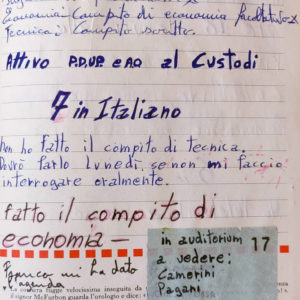 Economia: Compito di economia facoltativo x
Tecnica: Compito scritto.
Attivo P.D.U.P. e A.O. al Custodi
7 in Italiano
Non ho fatto il compito di tecnica.
Dovrò farlo Lunedì, se non mi faccio
interrogare oralmente.
fatto il compito di
economia —
in auditorium 17
a vedere:
Camerini
Pagani
mi ha dato
l'agenda
fugge velocissima inseguita da
signor McFurbon guarda l'orologio e dice: